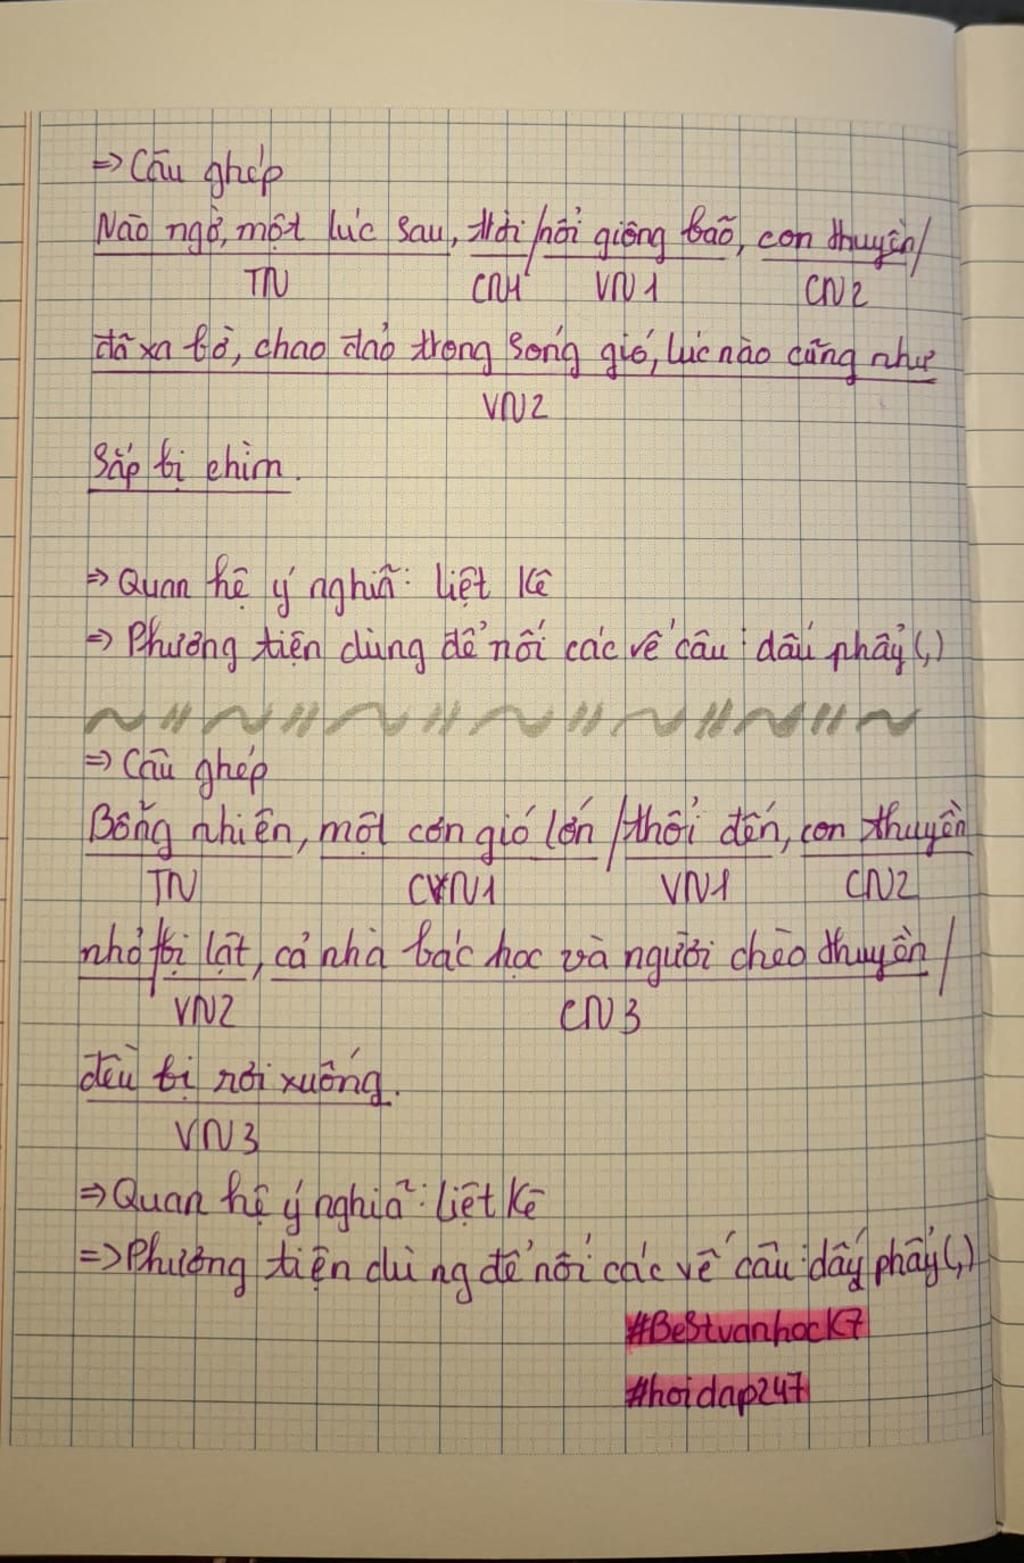 => Câu ghép
Nào ngờ, một lúc sau, trời/nổi giông bão, con thuyền/
TN CN1 VN1 CN2
đã xa bờ, chao đảo trong sóng gió, lúc nào cũng như
VN2
sắp bị chìm.
=> Quan hệ ý nghĩa: liệt kê
=> Phương tiện dùng để nối các vế câu: dấu phẩy (,)
=> Câu ghép
Bỗng nhiên, một cơn gió lớn/thổi đến, con thuyền
TN CN1 VN1 CN2
nhỏ/bị lật, cả nhà bác học và người chèo thuyền/
VN2 CN3
đều bị rơi xuống.
VN3
=> Quan hệ ý nghĩa: liệt kê
=> Phương tiện dùng để nối các vế câu: dấy phẩy (,)
#BeStvanhocK7
#hoidap247